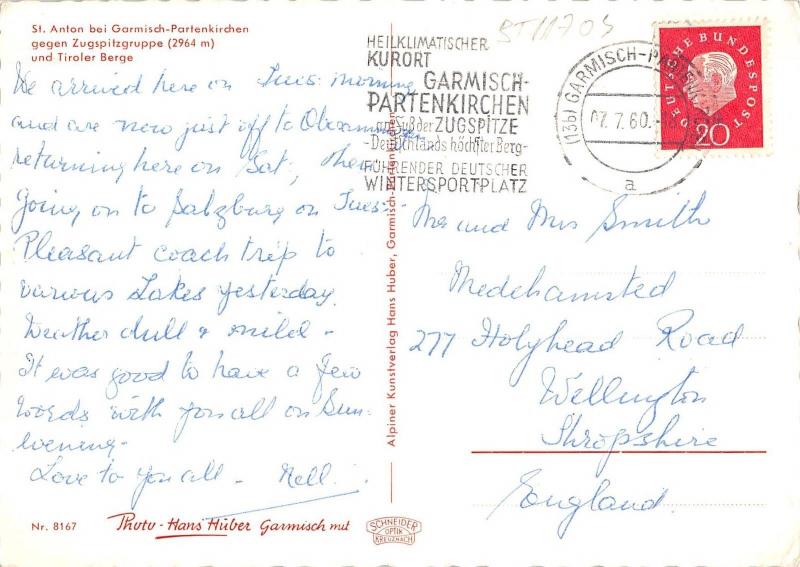 St. Anton bei Garmisch-Partenkirchen
gegen Zugspitzgruppe (2964 m)
und Tiroler Berge
We arrived here on Tues: morning
and are now just off to Oberammergau
returning here on Sat, then
going on to Salzburg on Tues:
Pleasant coach trip to
various Lakes yesterday.
Weather dull & mild -
It was good to have a few
words with you all on Sun:
evening.
Love to you all - Nell.
Nr. 8167
Photo - Hans Huber Garmisch mit
SCHNEIDER
OPTIK
KREUZNACH
Alpiner Kunstverlag Hans Huber, Garmisch-Partenkirchen
ST11704
HEILKLIMATISCHER
KURORT
GARMISCH-
PARTENKIRCHEN
am Fuß der ZUGSPITZE
-Deutschlands höchster Berg-
FÜHRENDER DEUTSCHER
WINTERSPORTPLATZ
(13b) GARMISCH-PARTENK
07.7.60.
a
DEUTSCHE BUNDESPOST
20
Mr and Mrs Smith
Medehamsted
277 Holyhead Road
Wellington
Shropshire
England.